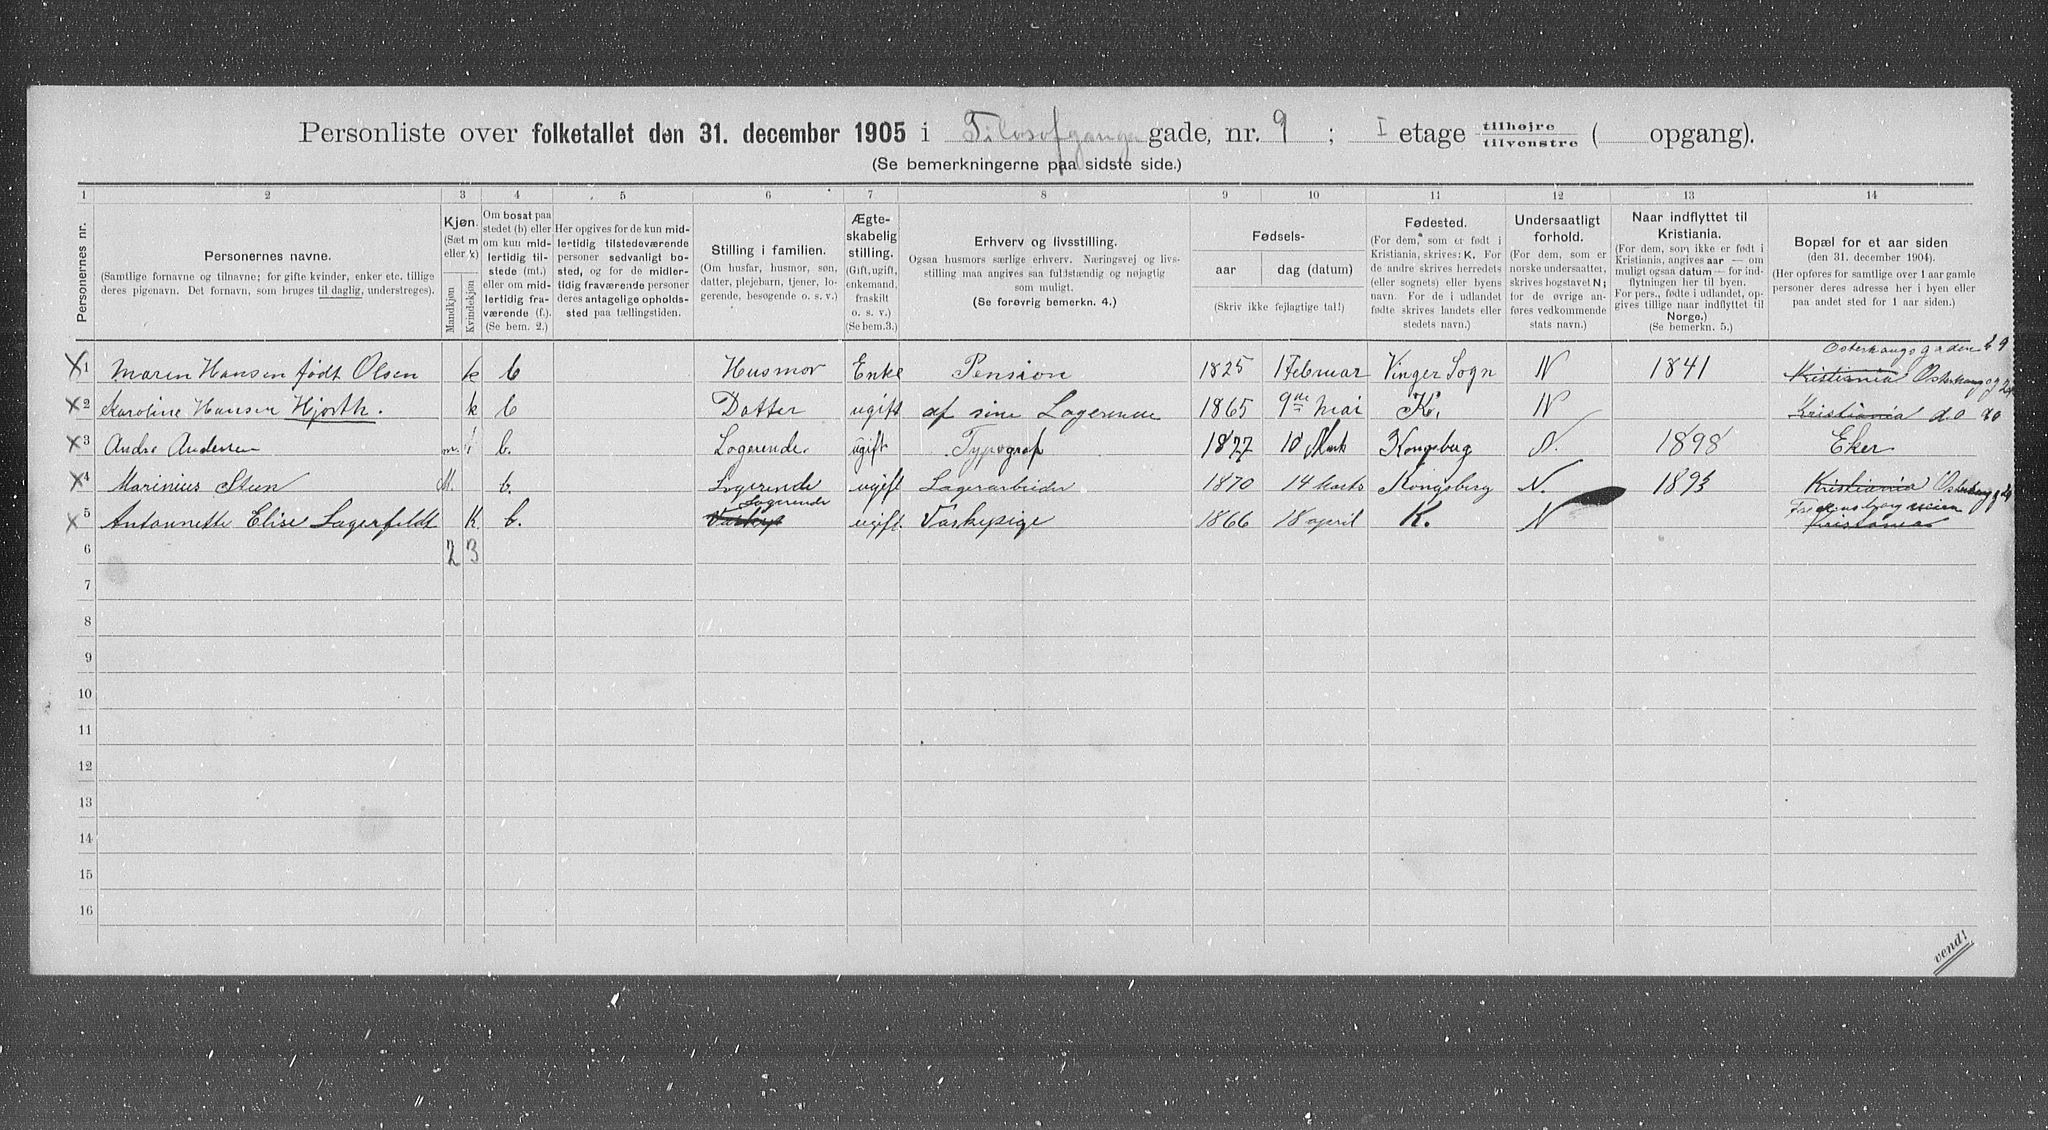 Personliste over folketallet den 31. december 1905 i Filosofganga gade, nr. 9; I etage tilhøjre tilvenstre ( opgang).
(Se bemerkningerne paa sidste side.)
1 2 3 4 5 6 7 8 9 10 11 12 13 14
Personernes nr.
Personernes navne.
(Samtlige fornavne og tilnavne; for gifte kvinder, enker etc. tillige
deres pigenavn. Det fornavn, som bruges til daglig, understreges).
Kjøn.
(Sæt m
eller k)
Mandkjøn
Kvindekjøn
Om bosat paa
stedet (b) eller
om kun mid-
lertidig til-
stede (mt.)
eller om mid-
lertidig fra-
værende (f.).
(Se bem. 2.)
Her opgives for de kun mid-
lertidig tilstedeværende
personer sedvanligt bo-
sted, og for de midler-
tidig fraværende personer
deres antagelige opholds-
sted paa tællingstiden.
Stilling i familien.
(Om husfar, husmor, søn,
datter, plejebarn, tjener, lo-
gerende, besøgende o. s. v.)
Ægte-
skabelig
stilling.
(Gift, ugift,
enkemand,
fraskilt
o. s. v.)
(Se bem.3.)
Erhverv og livsstilling.
Ogsaa husmors særlige erhverv. Næringsvej og livs-
stilling maa angives saa fuldstændig og nøjagtig
som muligt.
(Se forøvrig bemerkn. 4.)
Fødsels-
aar
dag (datum)
(Skriv ikke fejlagtige tal!)
Fødested.
(For dem, som er født i
Kristiania, skrives: K. For
de andre skrives herredets
(eller sognets) eller byens
navn. For de i udlandet
fødte skrives landets eller
stedets navn.)
Undersaatligt
forhold.
(For dem, som er
norske undersaatter,
skrives bogstavet N;
for de øvrige an-
føres vedkommende
stats navn.)
Naar indflyttet til
Kristiania.
(For dem, som ikke er født i
Kristiania, angives aar — om
muligt ogsaa datum — for ind-
flytningen her til byen.
For pers., fødte i udlandet, op-
gives tillige naar indflyttet til
Norge.)
(Se bemerkn. 5.)
Bopæl for et aar siden
(den 31. december 1904).
(Her opføres for samtlige over 1 aar gamle
personer deres adresse her i byen eller
paa andet sted for 1 aar siden.)
1 Maren Hansen født Olsen k b Husmor Enke Pension 1825 1 Februar Vinger Sogn N 1841 Kristiania
2 Karoline Hansen Hjorth. k b Datter ugift af sine Logerende 1865 9de Mai K. N Kristiania do
3 Andr. Andersen m. b. Logerende. ugift Typograf 1877 10 Kongsberg N. 1898 Eker
4 Marinius Steen M. b. Logerende ugift Lagerarbeider 1870 14 Marts Kongsberg N. 1893 Kristiania
5 Antonnette Elise Lagerfeldt K. b. Logerende ugift. Vaskepige 1866 18 april K. N Kristiania
6 2 3
7
8
9
10
11
12
13
14
15
16
vend!